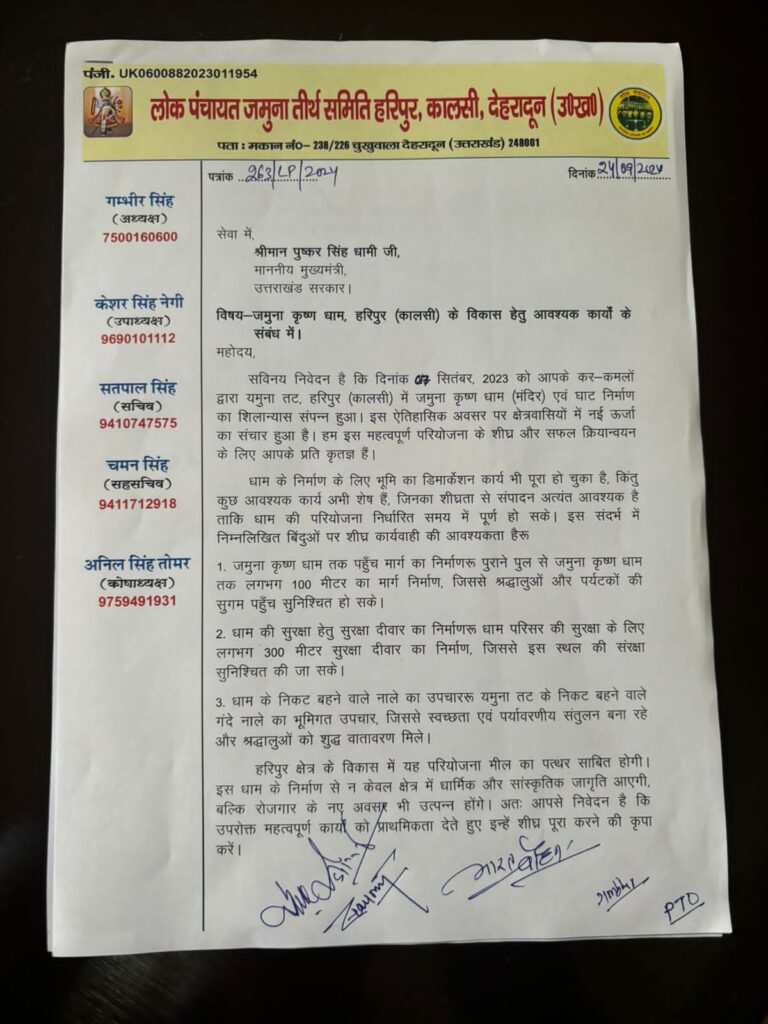 पंजी. UK0600882023011954
लोक पंचायत जमुना तीर्थ समिति हरिपुर, कालसी, देहरादून (उ०ख०)
पता : मकान नं०– 238/226 चुखुवाला देहरादून (उत्तराखंड) 248001
पत्रांक 263/LP/2024
दिनांक 24/09/2024
गम्भीर सिंह
(अध्यक्ष)
7500160600
केशर सिंह नेगी
(उपाध्यक्ष)
9690101112
सतपाल सिंह
(सचिव)
9410747575
चमन सिंह
(सहसचिव)
9411712918
अनिल सिंह तोमर
(कोषाध्यक्ष)
9759491931
सेवा में,
श्रीमान पुष्कर सिंह धामी जी,
माननीय मुख्यमंत्री,
उत्तराखंड सरकार।
विषय–जमुना कृष्ण धाम, हरिपुर (कालसी) के विकास हेतु आवश्यक कार्यों के
संबंध में।
महोदय,
सविनय निवेदन है कि दिनांक 07 सितंबर, 2023 को आपके कर–कमलों
द्वारा यमुना तट, हरिपुर (कालसी) में जमुना कृष्ण धाम (मंदिर) एवं घाट निर्माण
का शिलान्यास संपन्न हुआ। इस ऐतिहासिक अवसर पर क्षेत्रवासियों में नई ऊर्जा
का संचार हुआ है। हम इस महत्वपूर्ण परियोजना के शीघ्र और सफल क्रियान्वयन
के लिए आपके प्रति कृतज्ञ हैं।
धाम के निर्माण के लिए भूमि का डिमार्केशन कार्य भी पूरा हो चुका है, किंतु
कुछ आवश्यक कार्य अभी शेष हैं, जिनका शीघ्रता से संपादन अत्यंत आवश्यक है
ताकि धाम की परियोजना निर्धारित समय में पूर्ण हो सके। इस संदर्भ में
निम्नलिखित बिंदुओं पर शीघ्र कार्यवाही की आवश्यकता हैरू
1. जमुना कृष्ण धाम तक पहुँच मार्ग का निर्माणरू पुराने पुल से जमुना कृष्ण धाम
तक लगभग 100 मीटर का मार्ग निर्माण, जिससे श्रद्धालुओं और पर्यटकों की
सुगम पहुँच सुनिश्चित हो सके।
2. धाम की सुरक्षा हेतु सुरक्षा दीवार का निर्माणरू धाम परिसर की सुरक्षा के लिए
लगभग 300 मीटर सुरक्षा दीवार का निर्माण, जिससे इस स्थल की संरक्षा
सुनिश्चित की जा सके।
3. धाम के निकट बहने वाले नाले का उपचाररू यमुना तट के निकट बहने वाले
गंदे नाले का भूमिगत उपचार, जिससे स्वच्छता एवं पर्यावरणीय संतुलन बना रहे
और श्रद्धालुओं को शुद्ध वातावरण मिले।
हरिपुर क्षेत्र के विकास में यह परियोजना मील का पत्थर साबित होगी।
इस धाम के निर्माण से न केवल क्षेत्र में धार्मिक और सांस्कृतिक जागृति आएगी,
बल्कि रोजगार के नए अवसर भी उत्पन्न होंगे। अतः आपसे निवेदन है कि
उपरोक्त महत्वपूर्ण कार्यों को प्राथमिकता देते हुए इन्हें शीघ्र पूरा करने की कृपा
करें।
PTO